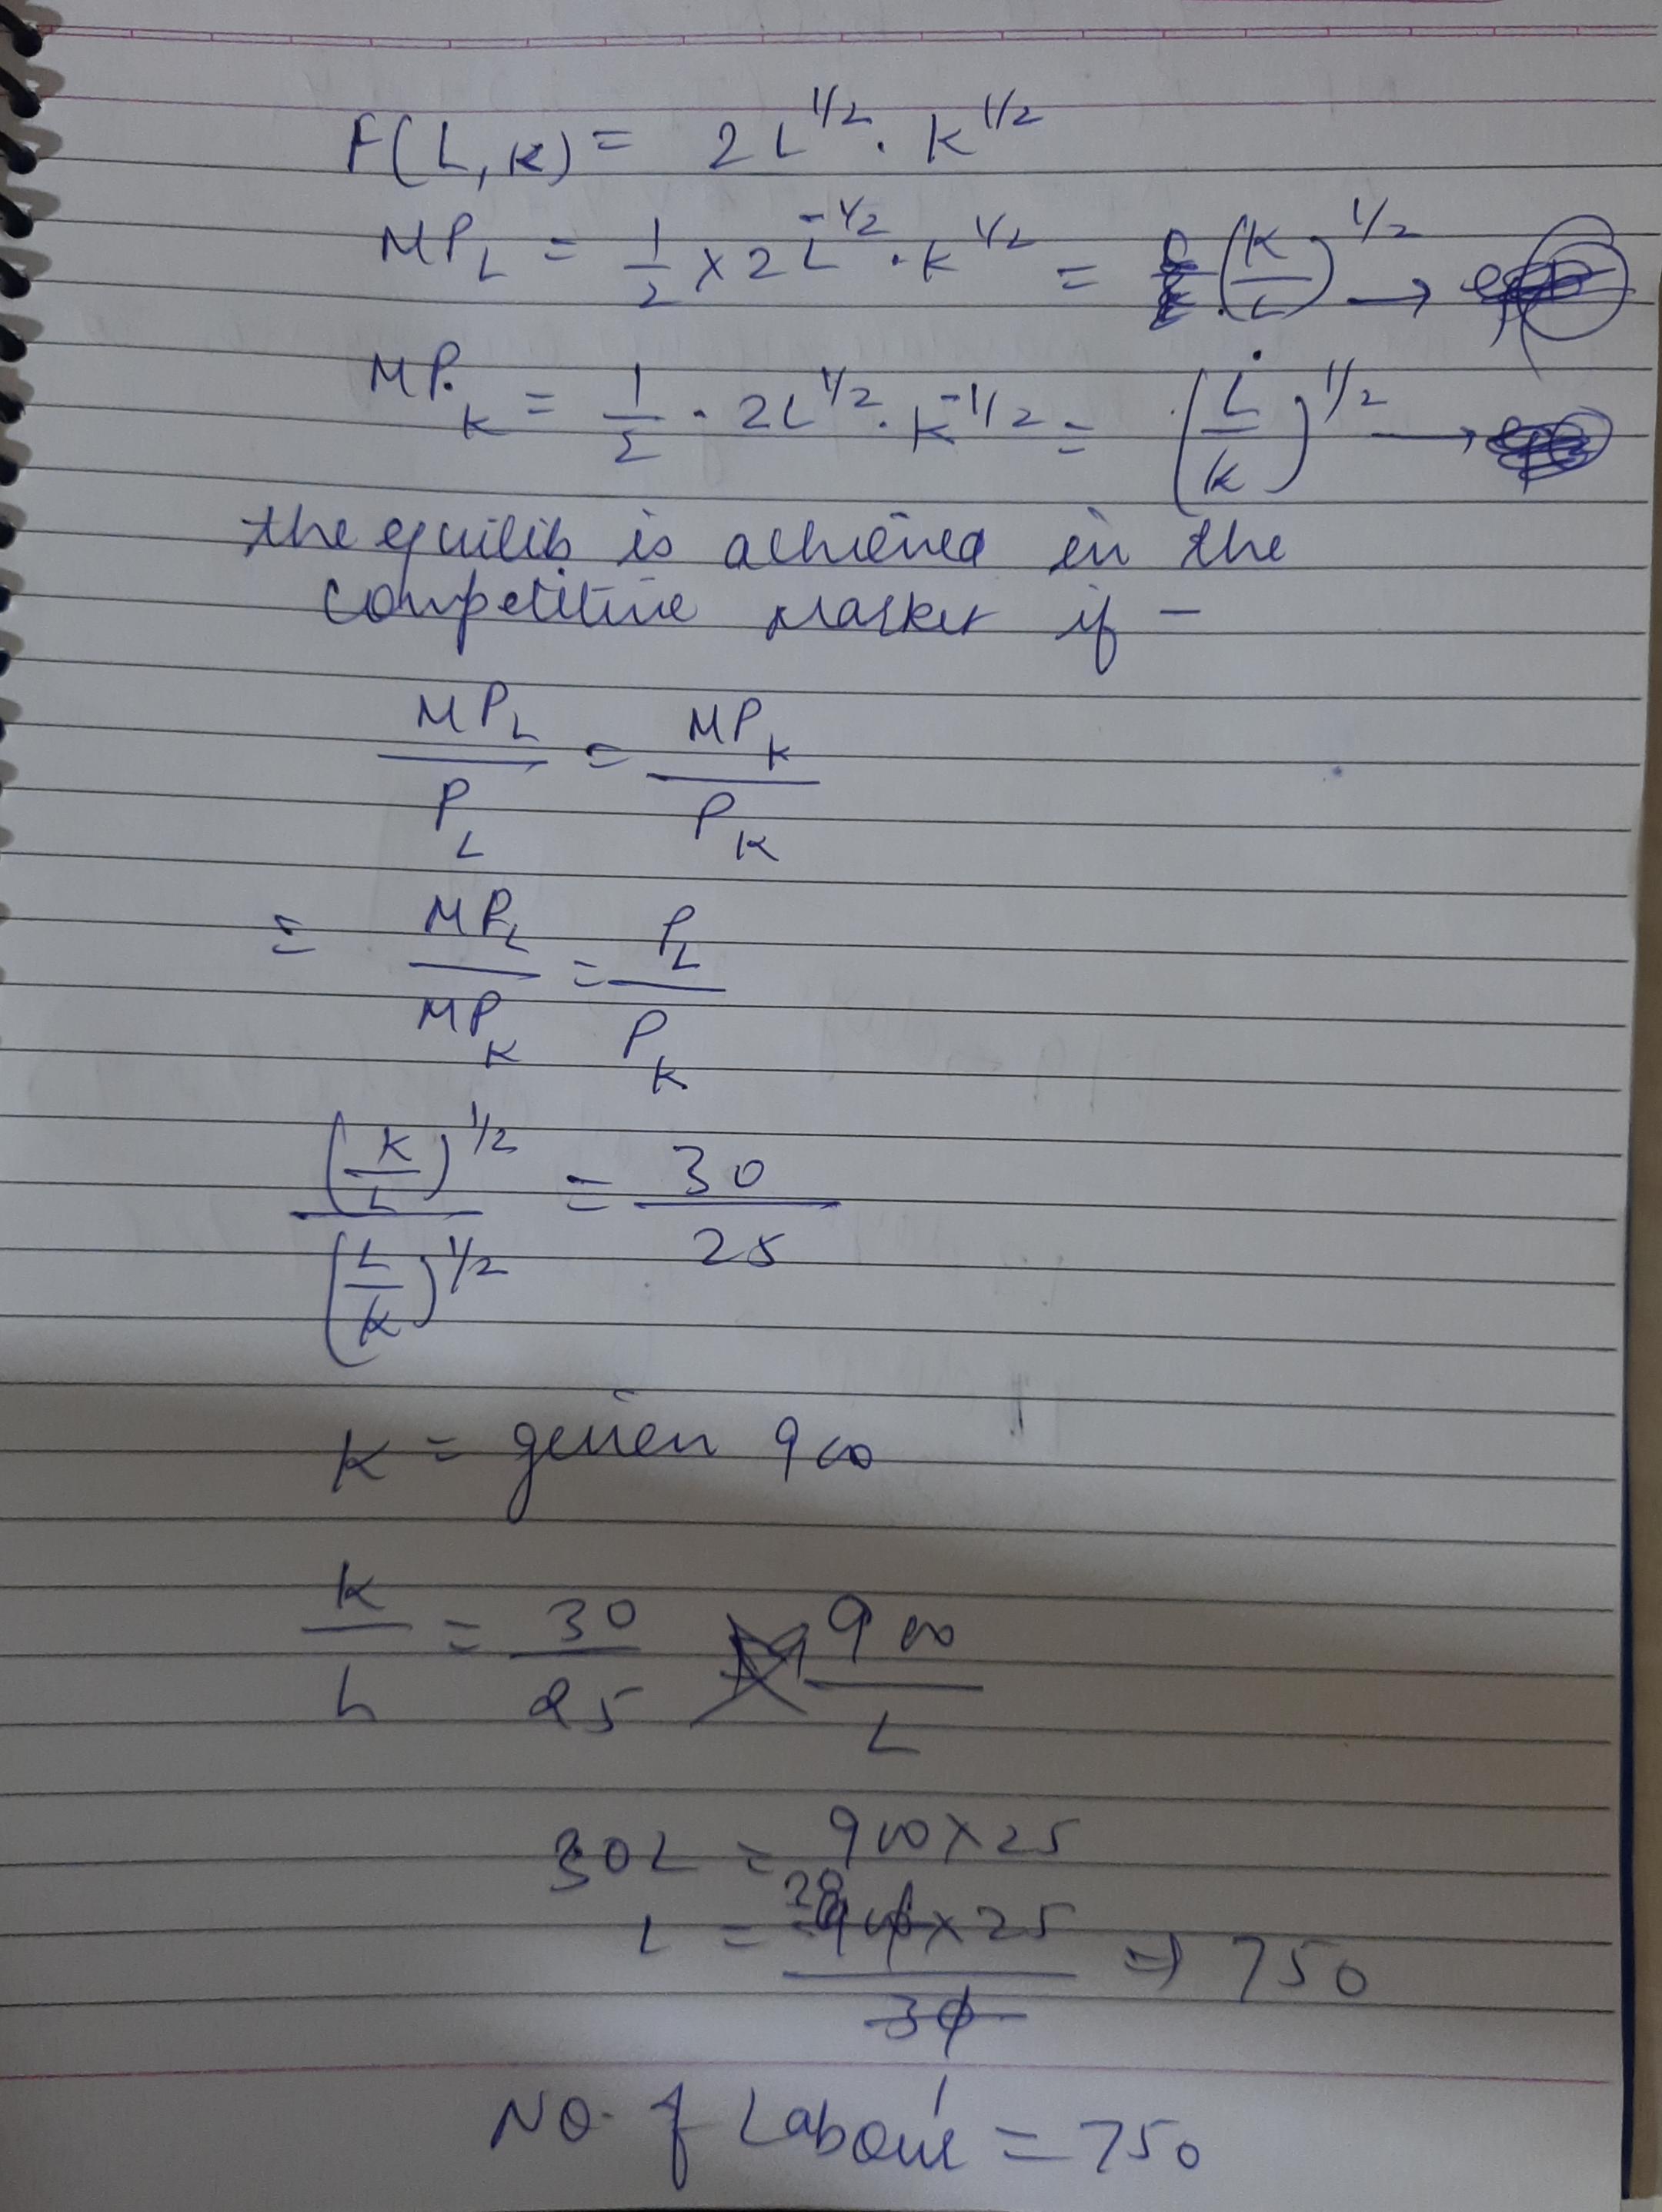 F(L,K) = 2L^1/2 . K^1/2
MP_L = 1/2 × 2L^-1/2 . K^1/2 = (K/L)^1/2 →
MP_K = 1/2 . 2L^1/2 . K^-1/2 = (L/K)^1/2 →
the equilib is achieved in the
competitive market if –
MP_L/P_L = MP_K/P_K
= MP_L/MP_K = P_L/P_K
(K/L)^1/2 / (L/K)^1/2 = 30/25
K = given 900
K/L = 30/25 900/L
30L = 900×25
L = 900×25/30 ⇒ 750
NO. of Labour = 750